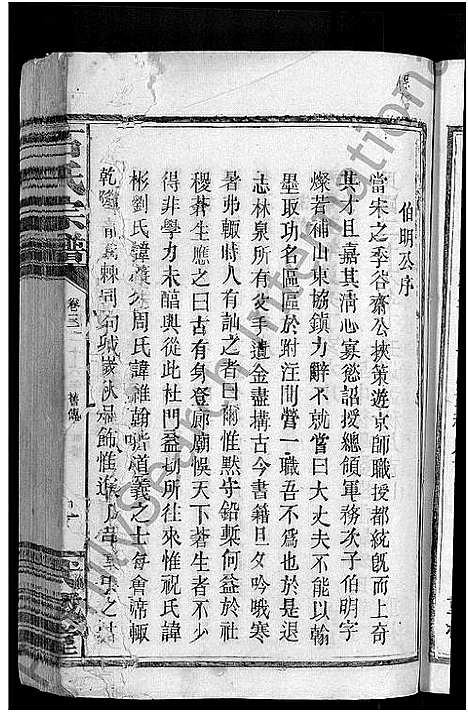 伯明公序
當宋之季谷齋公挾策遊京師職授都統旣而上奇
其才且嘉其淸心寡慾詔授總領軍務次子伯明字
燦若補山東協鎮力辭不就嘗曰大丈夫不能以翰
墨取功名區區於附注間營一職吾不爲也於是退
志林泉所有父手遺金盡搆古今書籍旦夕吟哦寒
暑弗輟時人有訕之者曰爾惟默守鉛槧何益於社
稷蒼生應之曰古有身登廊廟悞天下蒼生者不少
得非學力未醖與從此杜門益切所往來惟祝氏諱
彬劉氏諱周氏諱維翰皆道義之士每會席輒
乾隆
氏宗譜
卷三
舊傳
堂
My Search International